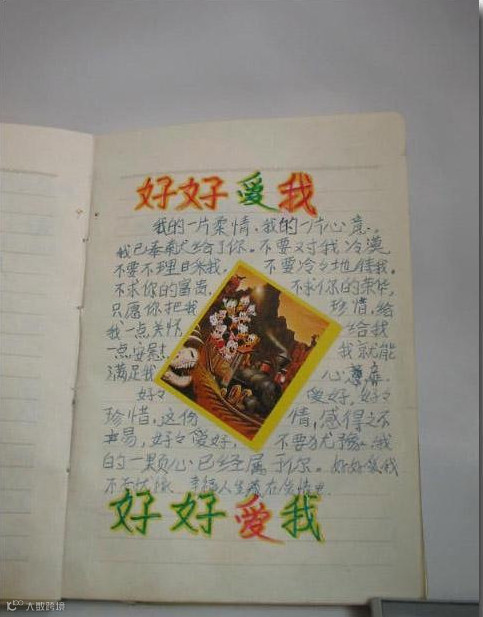 好好爱我
我的一片柔情,我的一片心意。
我已奉献给了你。不要对我冷漠
不要不理睬我。 不要冷冷地待我。
不求你的富贵, 不求你的荣华,
只愿你把我 珍惜,给
我一点关怀 给我
一点安慰 我就能
满足我 心意
好好 爱我,好好
珍惜,这份 情,感得之不
易,好好爱我, 不要犹豫,我
的一颗心已经属于你。好好爱我
不 幸福人生藏在爱情中
好好爱我
大数跨境